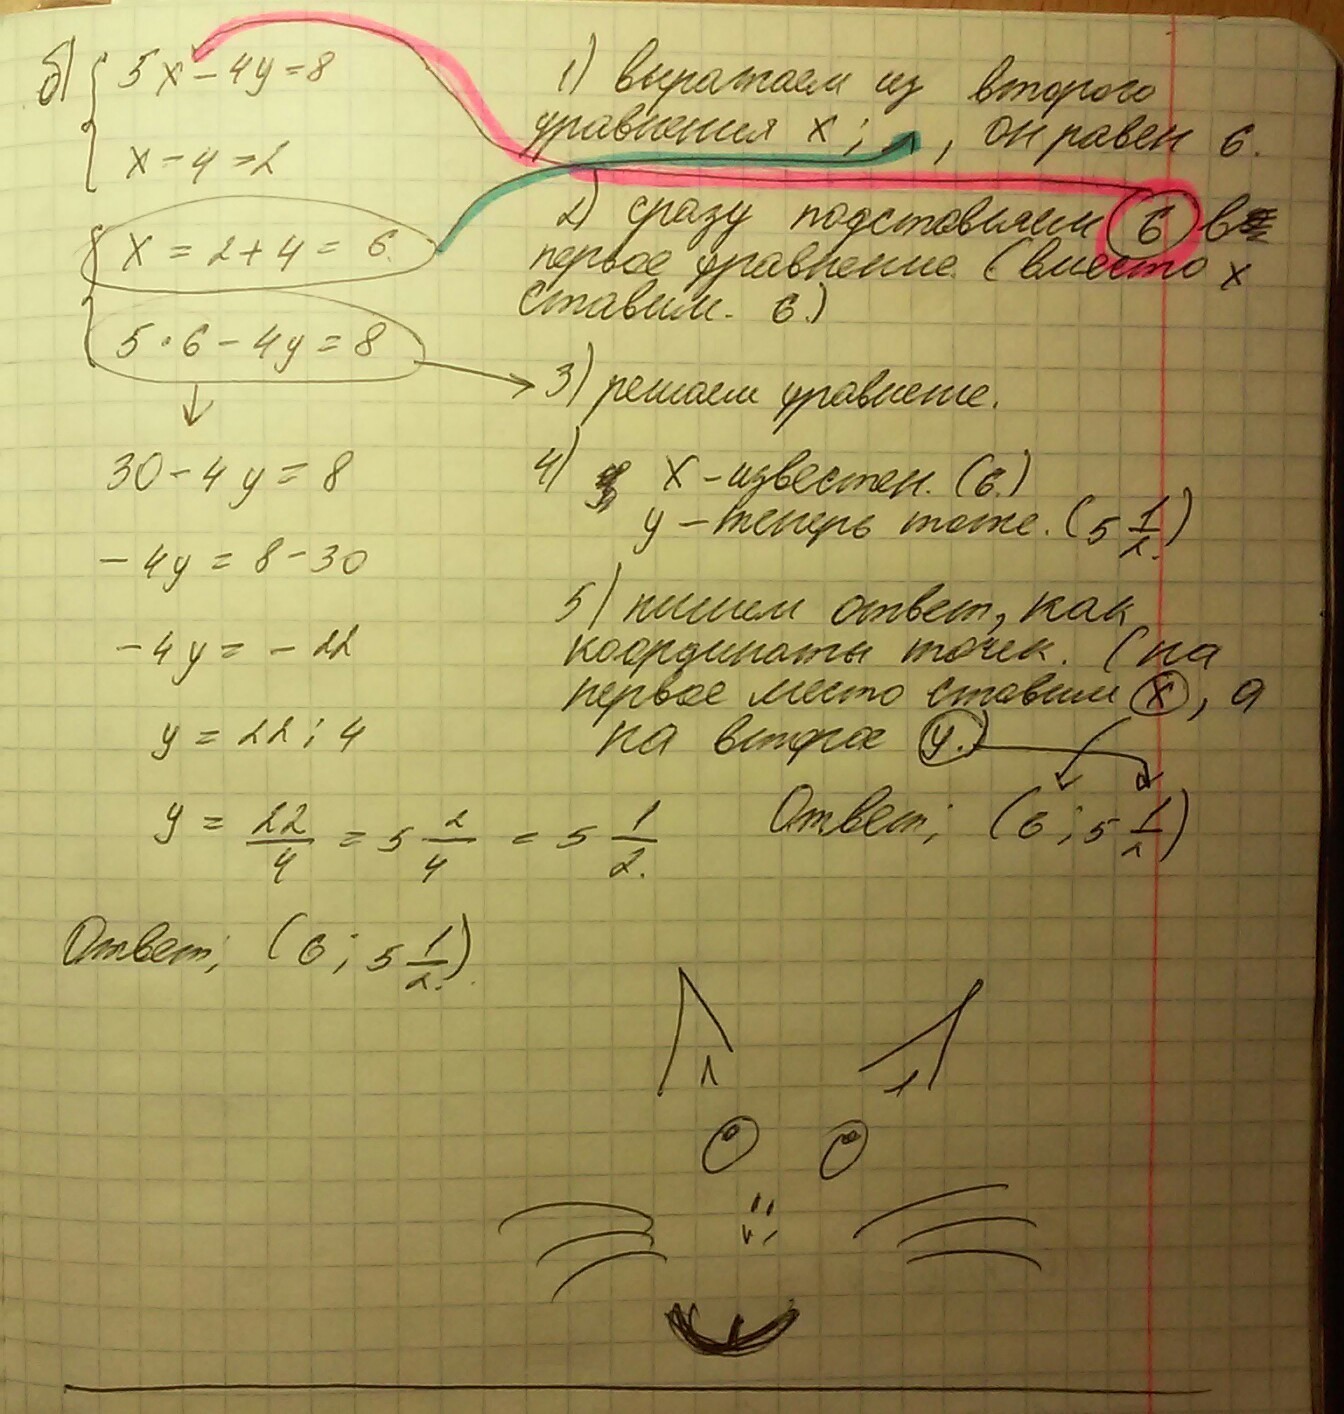 б)
5x - 4y = 8
x - 4 = 2
x = 2 + 4 = 6.
5 · 6 - 4y = 8
30 - 4y = 8
- 4y = 8 - 30
- 4y = - 22
y = 22 : 4
y = 22/4 = 5 2/4 = 5 1/2.
Ответ: (6 ; 5 1/2).
1) выражаем из второго
уравнения x ; , он равен 6.
2) сразу подставляем 6 в
первое уравнение (вместо x
ставим 6.)
3) решаем уравнение.
4) x - известен. (6.)
y - теперь тоже. (5 1/2.)
5) пишем ответ, как
координаты точек. (на
первое место ставим x, а
на второе y.)
Ответ: (6 ; 5 1/2)